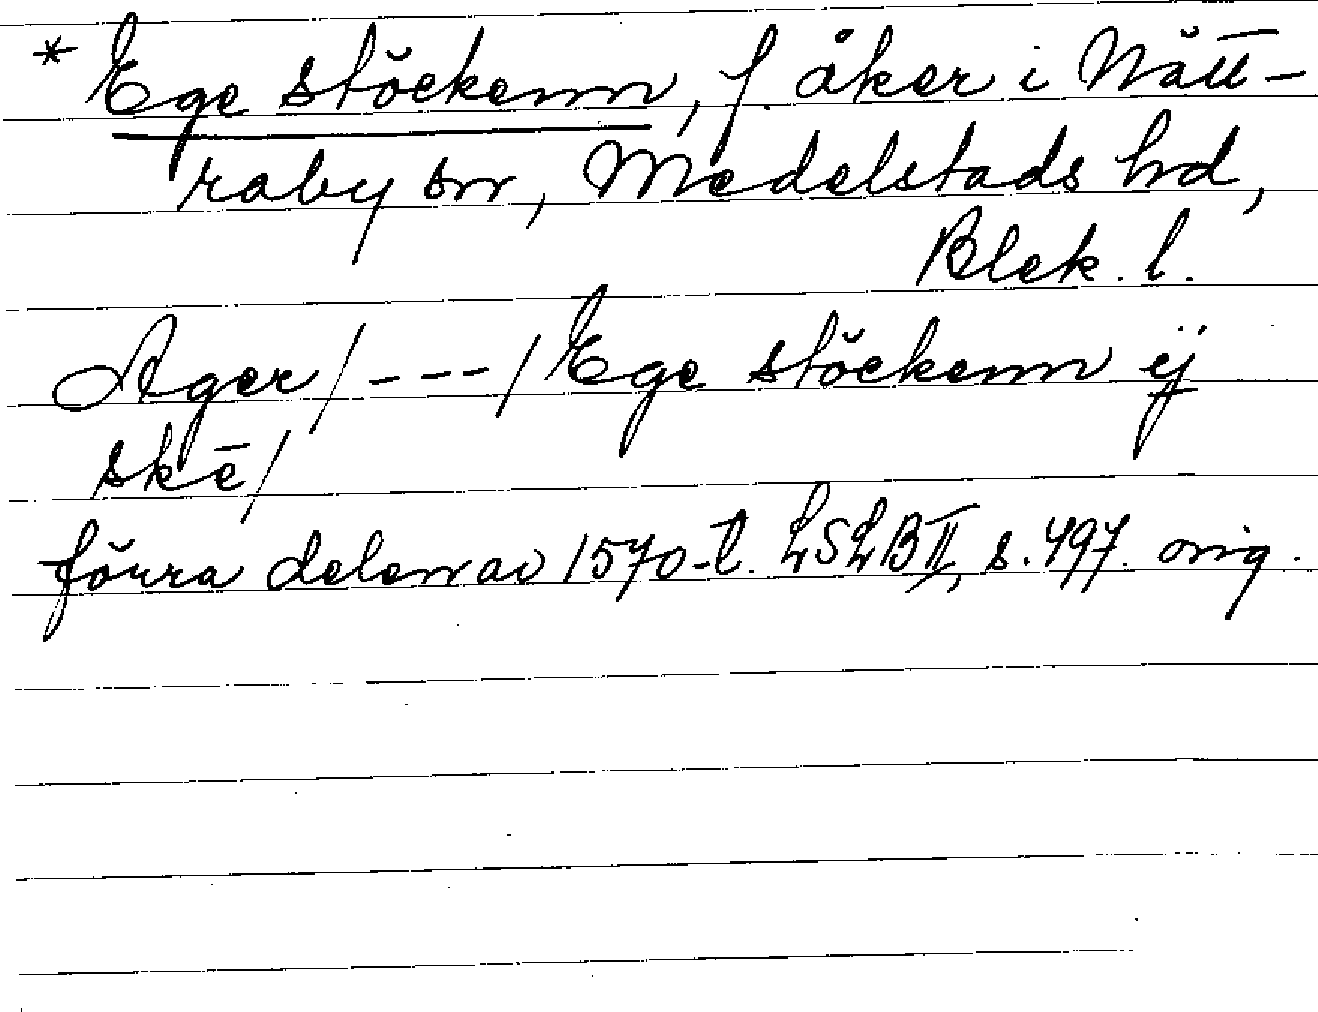 * Ege stöckenn, f. åker i Nätt-
raby sn, Medelstads hd,
Blek. l.
Ager / --- / Ege stöckenn ij
skē /
förra delen av 1570-t. LSLB II, s. 497. orig.